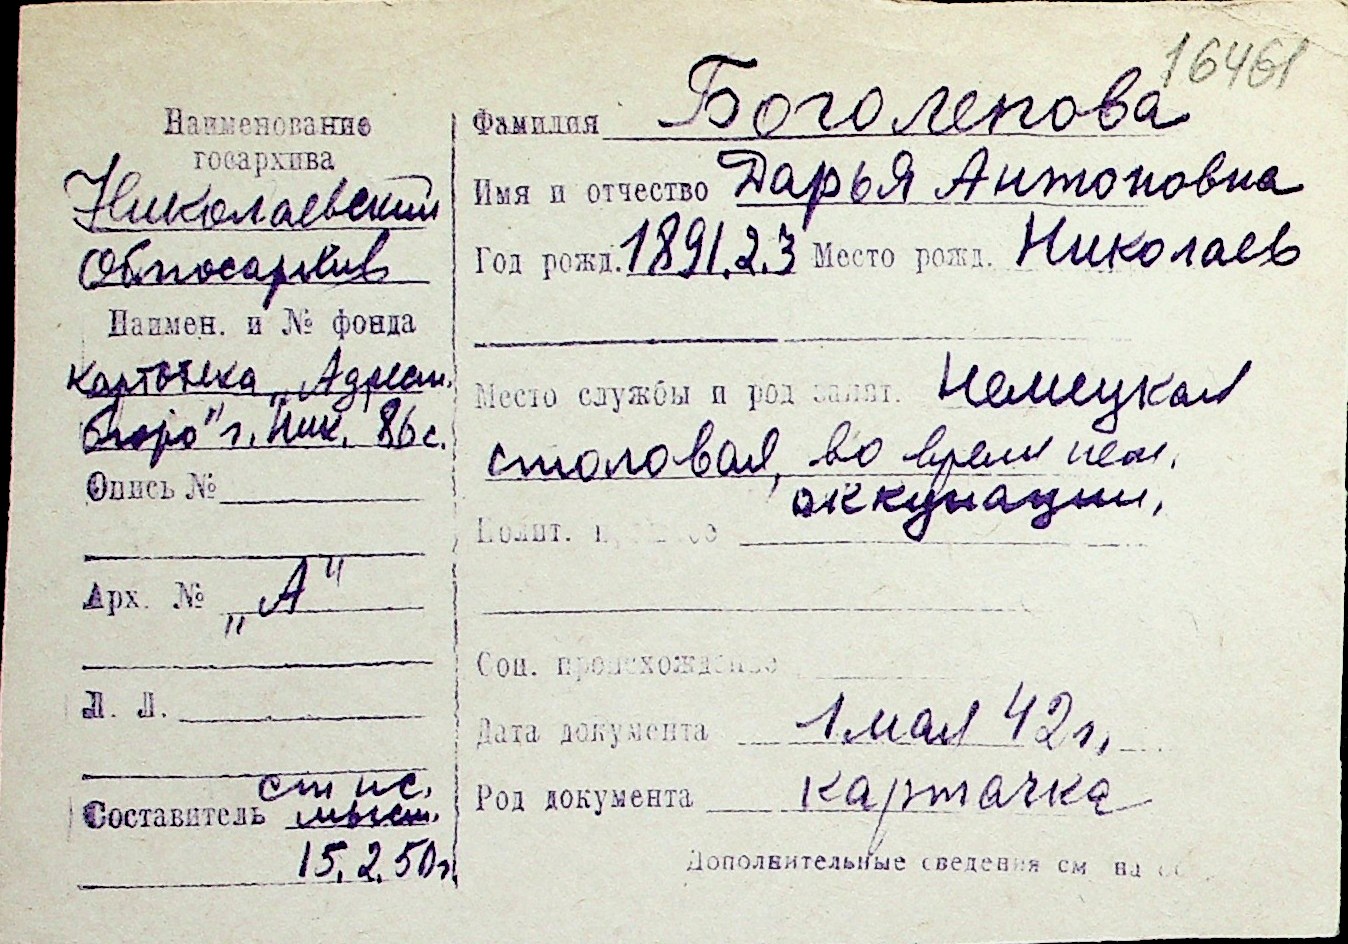 16461
Наименование
госархива
Николаевский
Облгосархив
Наимен. и № фонда
картотека „Адресн.
бюро" г. Ник. 86с.
Опись №
Арх. № „А"
Л. Л.
Составитель ст ис.
15.2.50г.
Фамилия Боголепова
Имя и отчество Дарья Антоновна
Год рожд. 1891.2.3 Место рожд. Николаев
Место службы и род занят. Немецкая
столовая, во время нем.
аккупации,
Полит.
Соц. происхождение
Дата документа 1 мая 42 г.
Род документа картачка
Дополнительные сведения см на